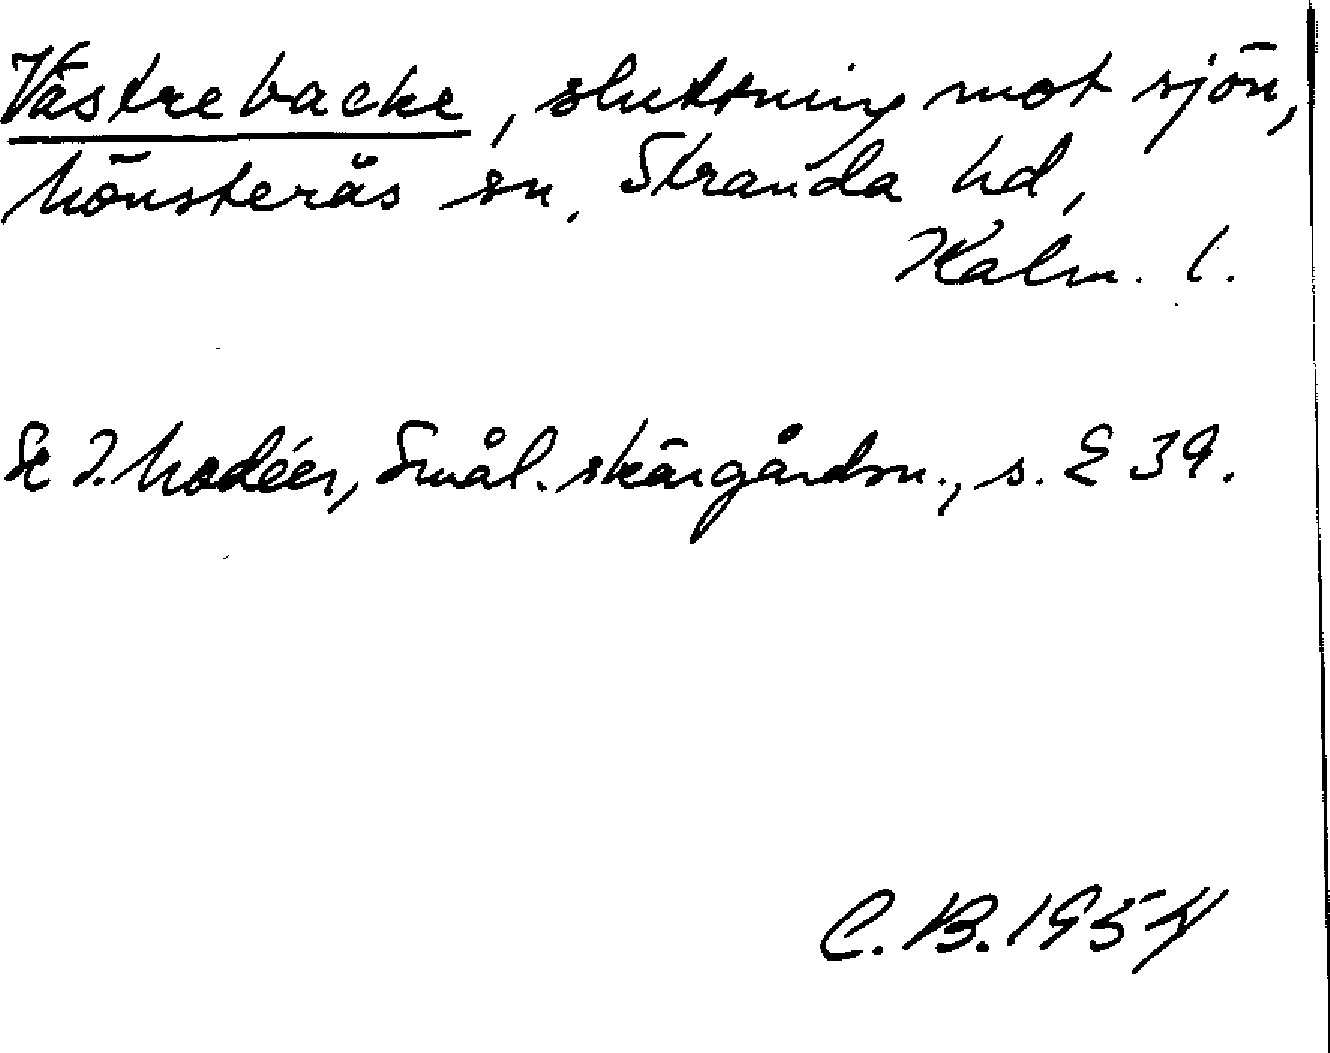 Västrebacke, sluttning mot sjön,
Mönsterås sn, Stranda hd,
Kalm. l.
Se I. Modéer, Smål. skärgårdsn., s. 239.
C. B. 1954